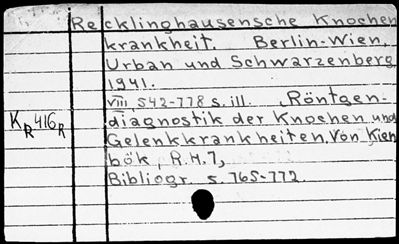 Recklinghausensche Knochen
krankheit. Berlin-Wien,
Urban und Schwarzenberg
1941.
VIII, 542-778 s. ill. „Röntgen-
KR416R diagnostik der Knochen und
Gelenkkrankheiten, von Kien
bök, R.H.7,
Bibliogr. s. 765-772.